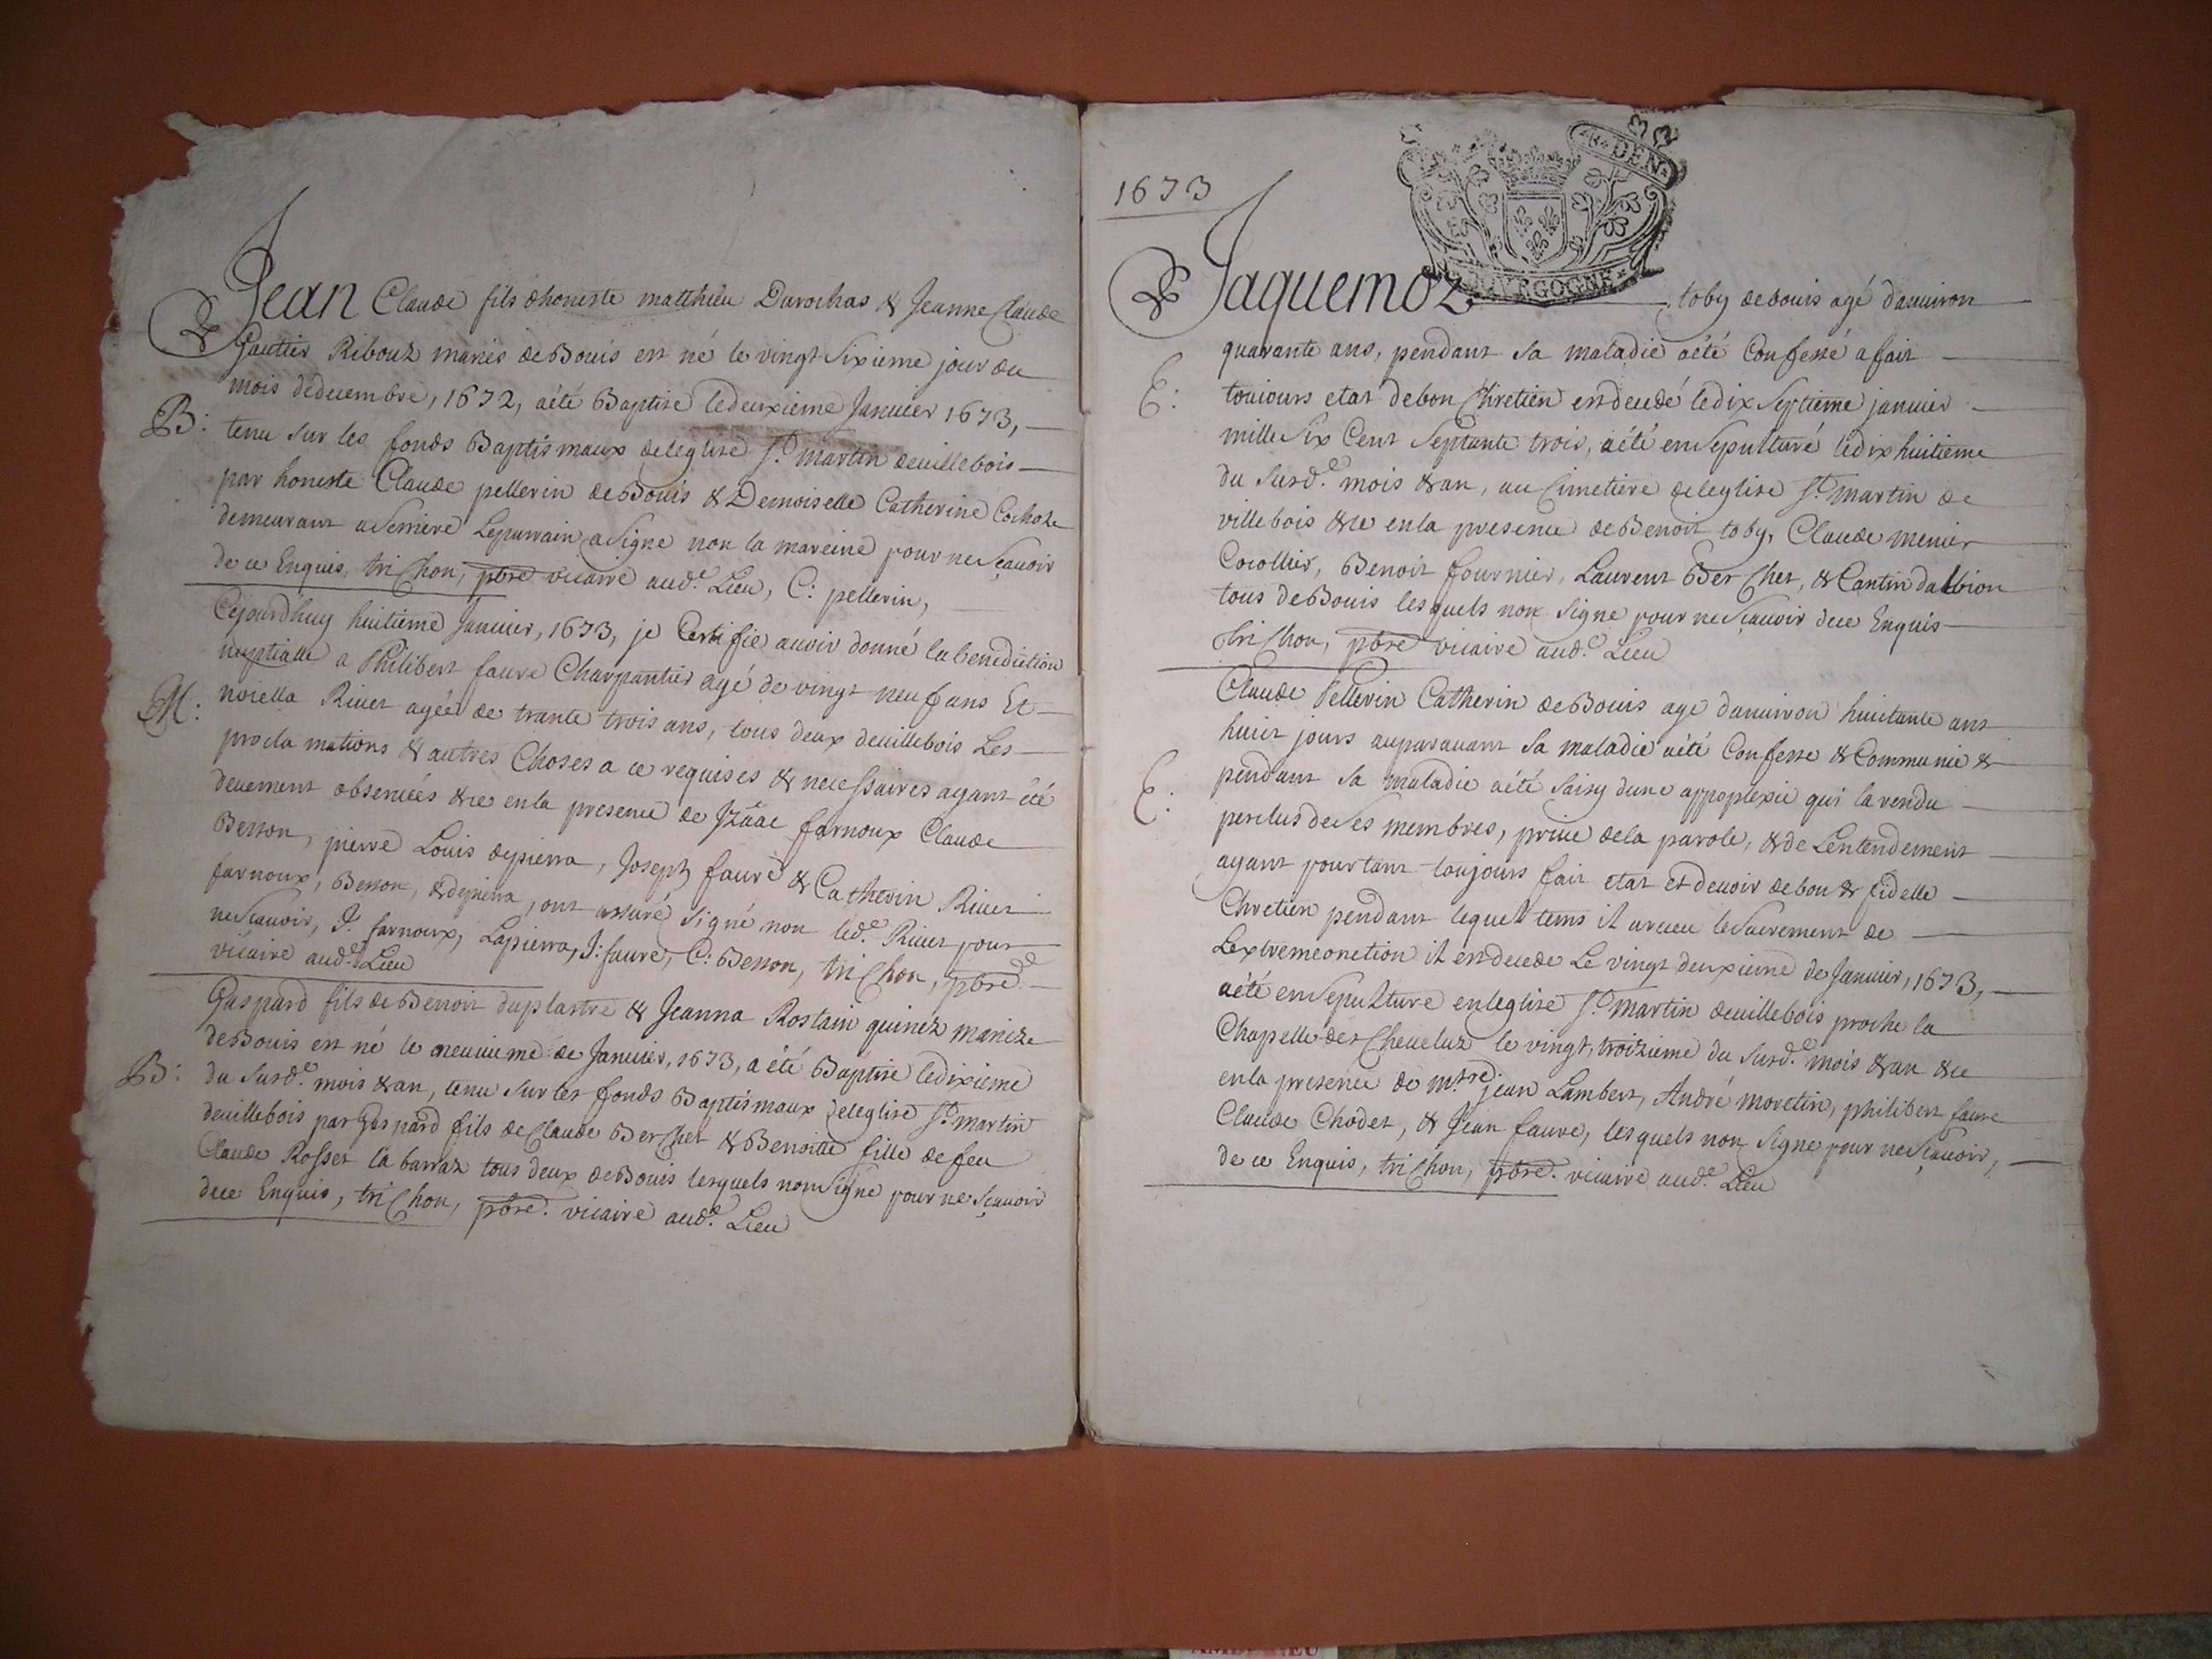 Jean Claude fils dhoneste matthieu Durochas & Jeanne Claude
Gautier Ribouz mariés de Bouis est né le vingt Sixieme jour du
mois dedecembre, 1672, aété Baptisé ledeuxieme Januier 1673,
B:
tenu sur les fonds Baptismaux deleglise St. martin deuillebois
par honeste Claude pellerin de Bouis & Demoiselle Catherine
demeurant a Serriere Leparrain a Signé non la mareine pour ne Sçauoir
de ce Enquis, triChon, pbre vicaire aud.e Lieu, C: pellerin,
Cejourdhuy huitieme Januier, 1673, je Certifie auoir donné la benediction
nuptialle a Philibert faure Charpantier agé de vingt neuf ans Et
M:
noiella Riuet agéé de trante trois ans, tous deux deuillebois Les
proclamations & autres Choses a ce requises & necessaires ayant été
deuement obseruéés &ce enla presence de Jzääc farnoux Claude
Besson, pierre Louis depierra, Joseph faure & Catherin Riuet
farnoux, Besson, & depierra, ont assuré signé non led.e Riuet pour
ne Scauoir, J. farnoux, Lapierra, J: faure, C: Besson, triChon, pbre.
vicaire aud.e Lieu
Gaspard fils de Benoit duplastre & Jeanna Rostain quinez
de Bouis est né le neuuieme de Januier, 1673, a été Baptisé ledixieme
B:
du Susd.e mois & an, tenu Sur les fonds Baptismaux deleglise St. martin
deuillebois par Gaspard fils de Claude BerChet & Benoitte fille de feu
Claude Rosset la barraz tous deux de Bouis lesquels non Signé pour ne Sçauoir
dece Enquis, triChon, pbre. vicaire aud.e Lieu
1673
B. DEN
BOVRGOGNE
Jaquemoz toby de bouis agé danuiron
quarante ans, pendant sa maladie aété Confessé a fait
E:
touiours etat de bon Chretien est decedé ledix Septieme januier
mille Six Cent Septante trois, aété enSepulturé ledixhuitieme
du Susd.e mois & an, au Cimetiere deleglise St. martin de
villebois &ce enla presence de Benoit toby, Claude menier
Corollier, Benoit fournier, Laurent BerChet, & Cantin dalbion
tous de Bouis lesquels non signé pour ne Sçauoir dece Enquis
triChon, pbre vicaire aud.e Lieu
Claude Pellerin Catherin de Bouis agé danuiron huictante ans
huict jours auparauant sa maladie aété Confessé & Communié &
E:
pendant sa maladie aété Saisy dune appoplexie qui la rendu
perclus de ses membres, priué dela parole, & de Lentendement
ayant pourtant toujours fait etat et deuoir de bon & fidelle
Chretien pendant lequel tems il arecu le Sacrement de
Lextremeonction il est decedé Le vingt deuxieme de Januier, 1673,
aété enSepulture enleglise St. martin deuillebois proche la
Chapelle des Cheueluz le vingt, troizieme du Susd.e mois & an &ce
enla presence de mtre. jean Lambert, André moretin, philibert faure
Claude Chodet, & Jean faure, lesquels non Signé pour ne Sçauoir,
de ce Enquis, triChon, pbre. vicaire aud.e Lieu